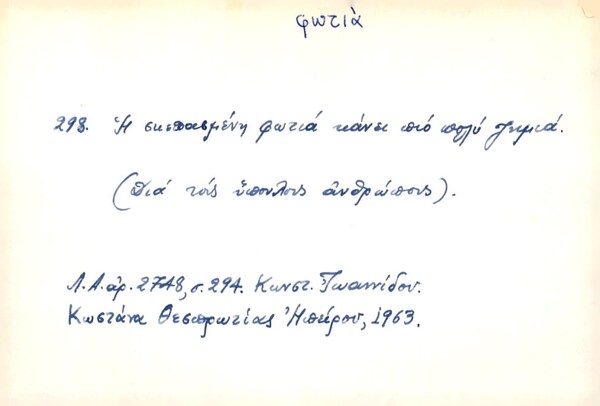 φωτιὰ
298. Ἡ σκεπασμένη φωτιά κάνει πιό πολύ ζημιά.
(Διά τούς ὕπουλους ἀνθρώπους).
Λ.Α. ἀρ. 2748, σ. 294. Κωνστ. Ἰωαννίδου.
Κωστάνα Θεσπρωτίας Ἠπείρου, 1963.